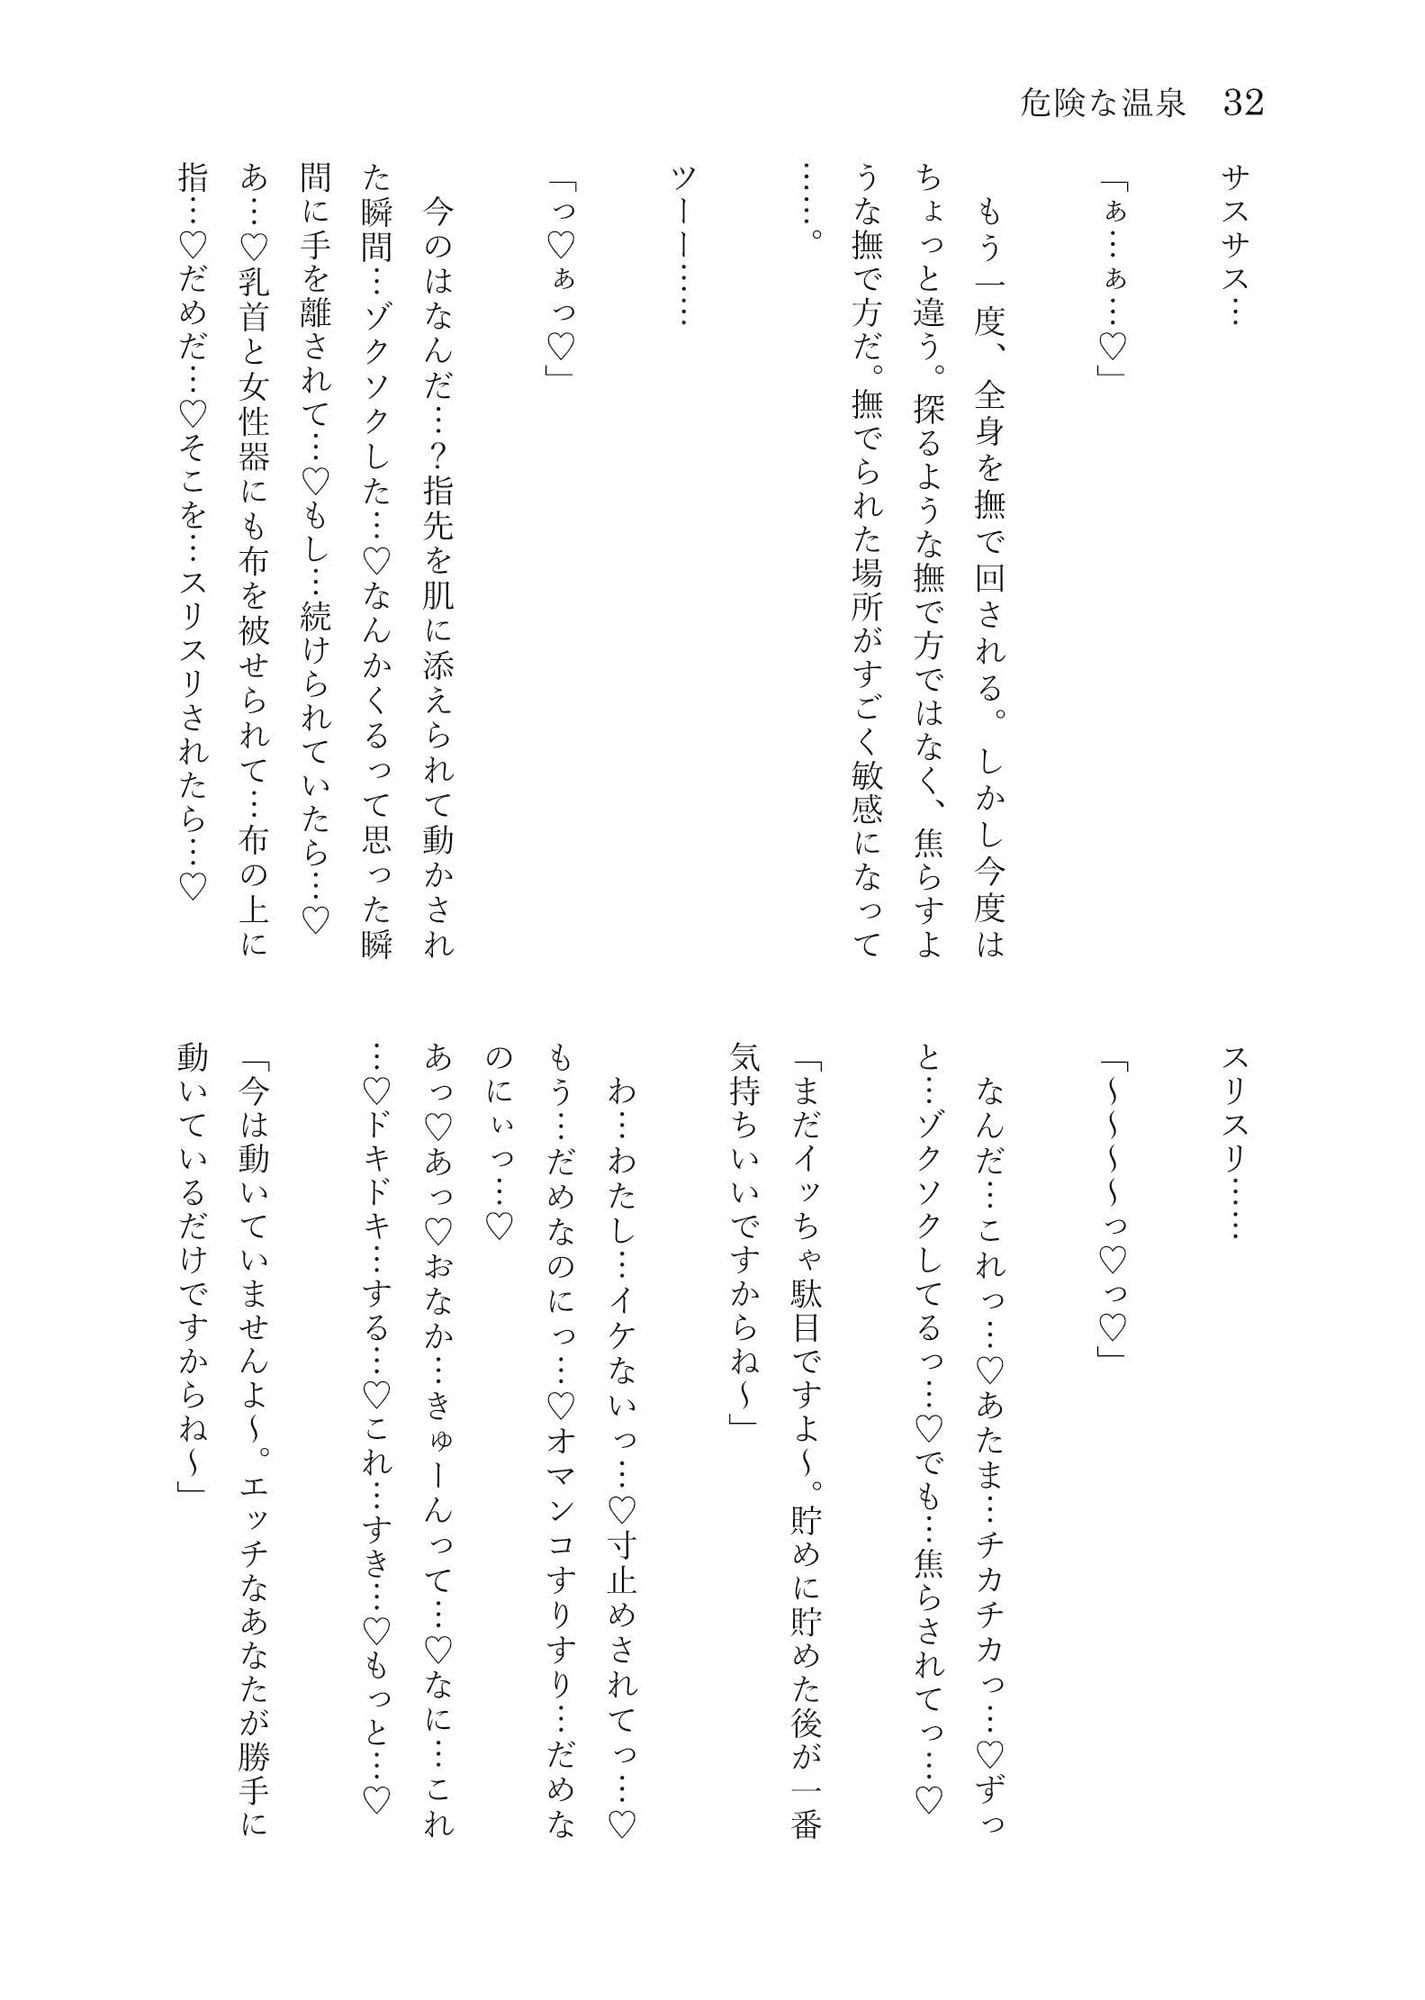 危険な温泉　32
サスサス…
「ぁ…ぁ…♡」
　もう一度、全身を撫で回される。しかし今度は
ちょっと違う。探るような撫で方ではなく、焦らすよ
うな撫で方だ。撫でられた場所がすごく敏感になって
……。
ツーー……
「っ♡ぁっ♡」
　今のはなんだ…？指先を肌に添えられて動かされ
た瞬間…ゾクソクした…♡なんかくるって思った瞬
間に手を離されて…♡もし…続けられていたら…♡
あ…♡乳首と女性器にも布を被せられて…布の上に
指…♡だめだ…♡そこを…スリスリされたら…♡
スリスリ……
「～～～～っ♡っ♡」
　なんだ…これっ…♡あたま…チカチカっ…♡ずっ
と…ゾクソクしてるっ…♡でも…焦らされてっ…♡
「まだイッちゃ駄目ですよ～。貯めに貯めた後が一番
気持ちいいですからね～」
　わ…わたし…イケないっ…♡寸止めされてっ…♡
もう…だめなのにっ…♡オマンコすりすり…だめな
のにぃっ…♡
あっ♡あっ♡おなか…きゅーんって…♡なに…これ
…♡ドキドキ…する…♡これ…すき…♡もっと…♡
「今は動いていませんよ～。エッチなあなたが勝手に
動いているだけですからね～」